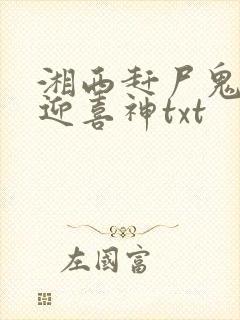 湘西赶尸鬼
迎喜神txt
左國富